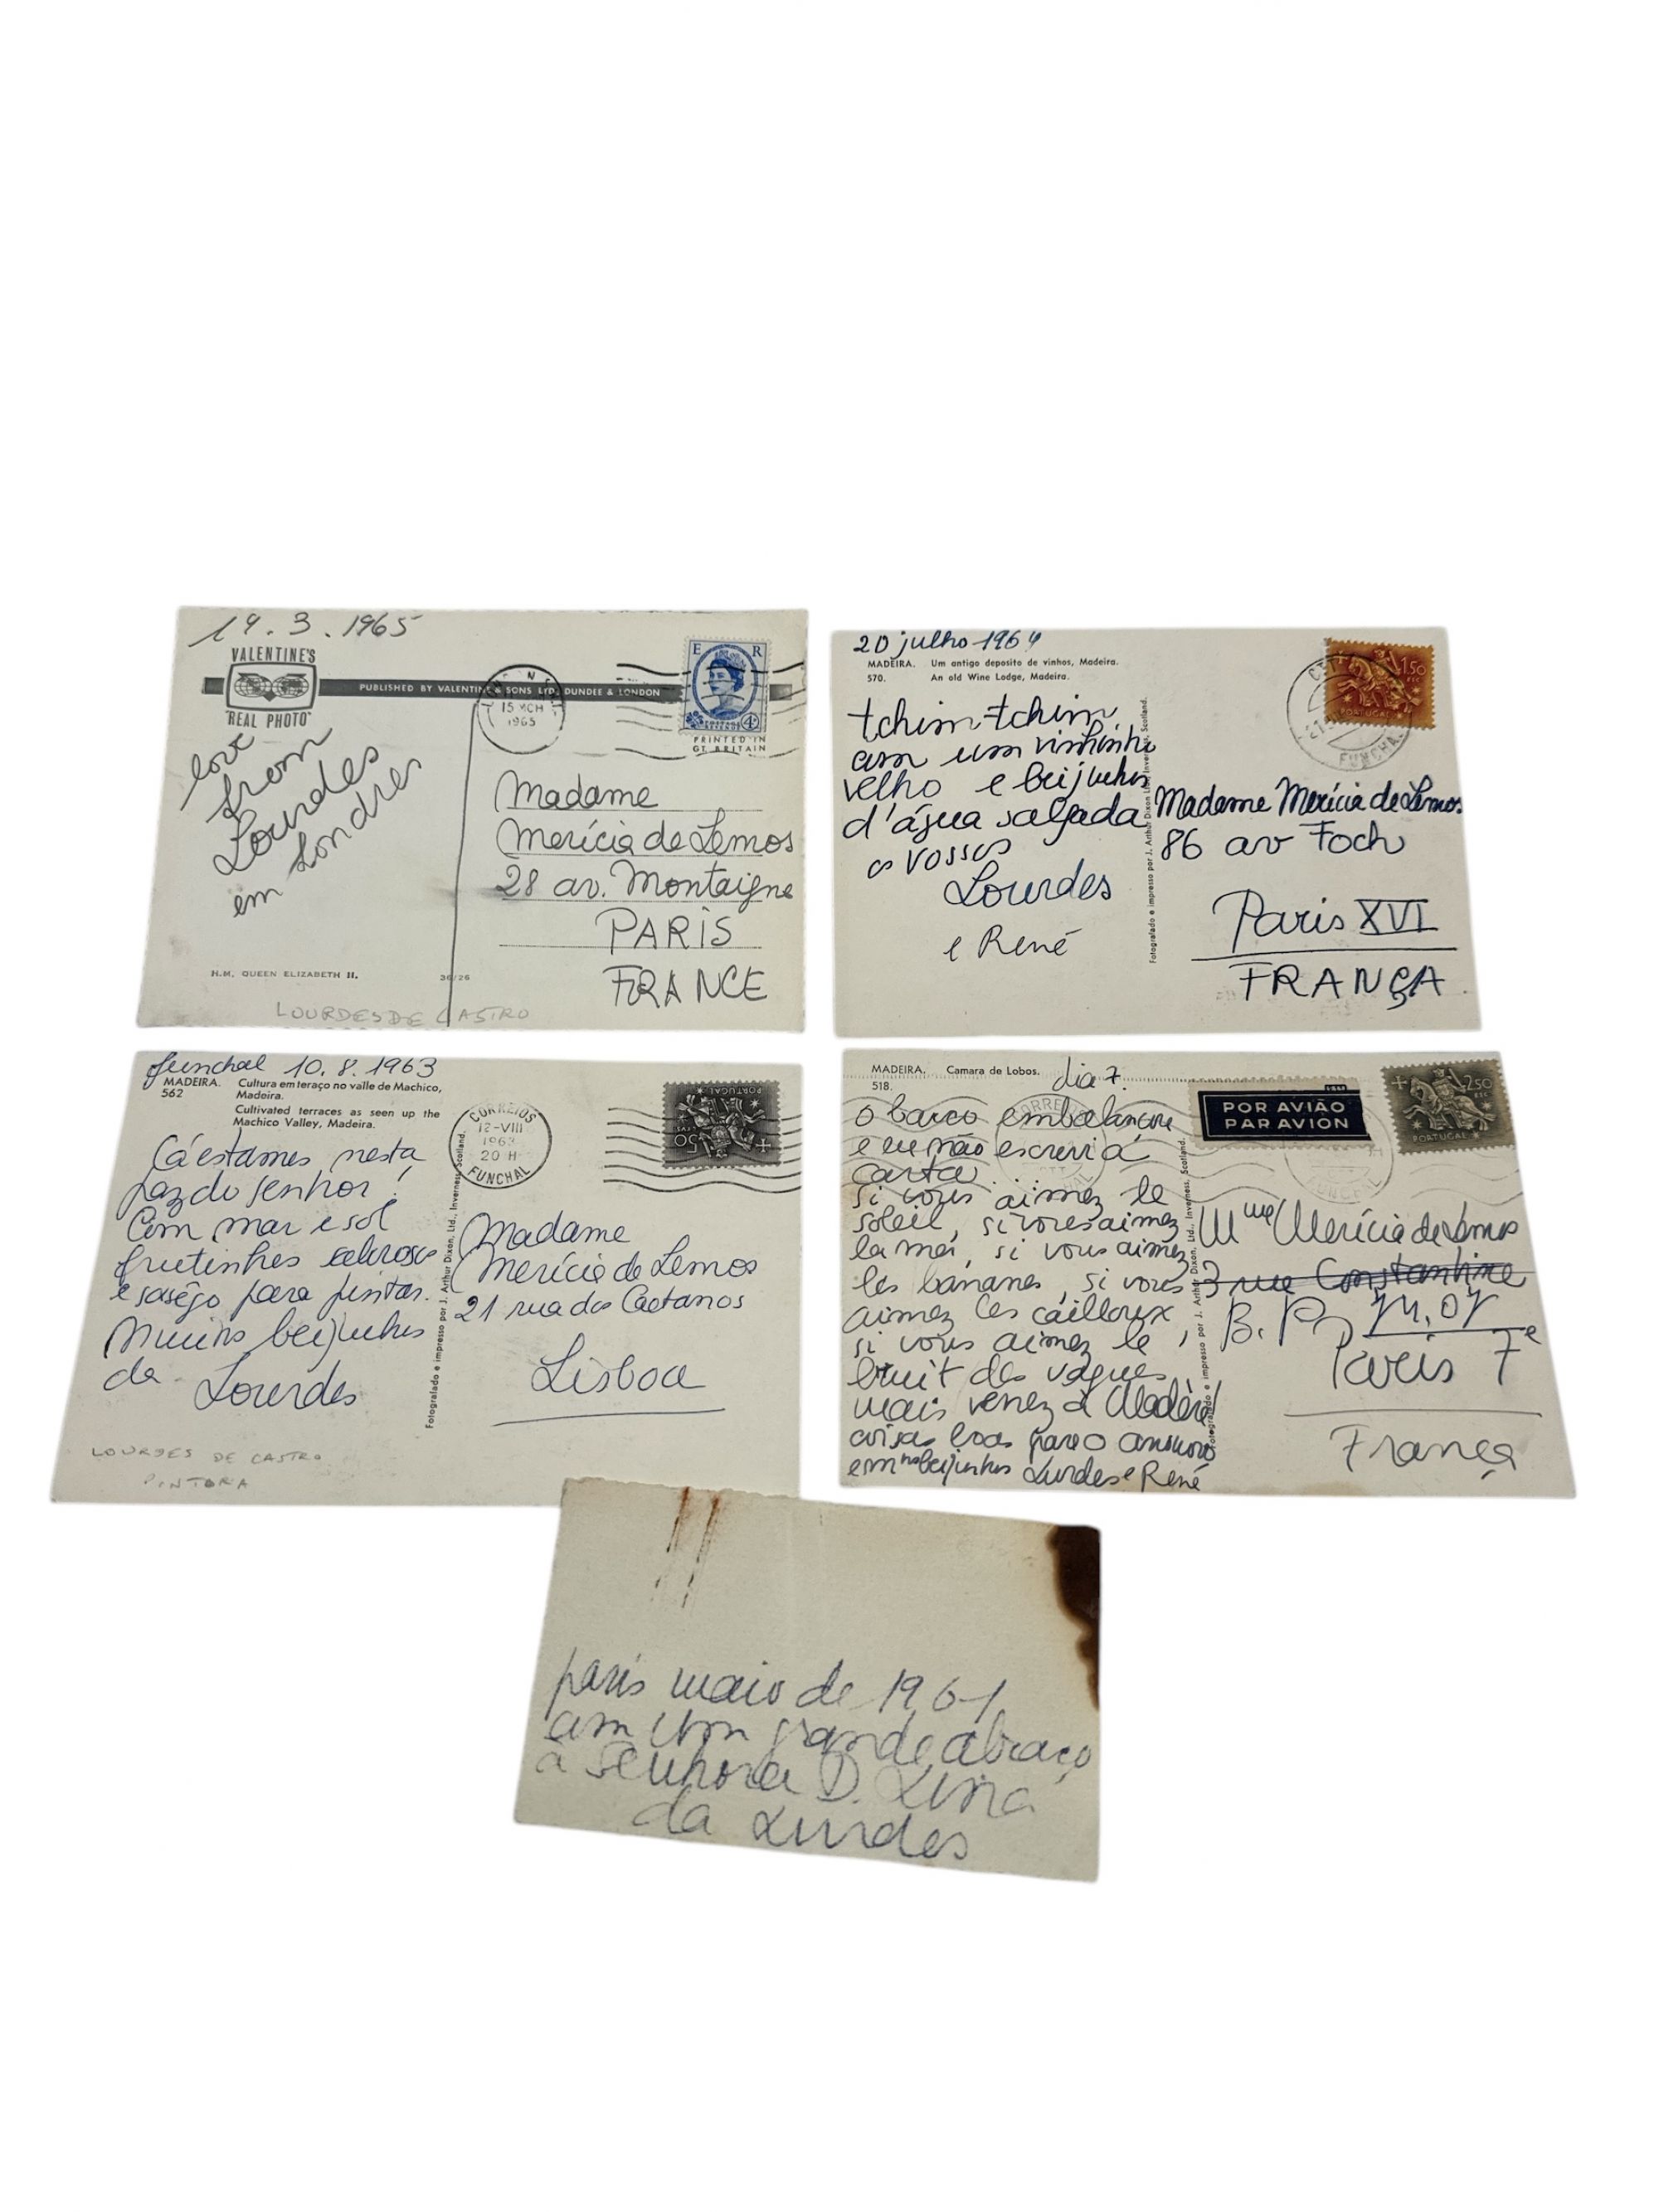 19.3.1965
VALENTINE'S
"REAL PHOTO"
PUBLISHED BY VALENTINE & SONS LTD. DUNDEE & LONDON
15 MCH
1965
E R
4D
PRINTED IN
GT. BRITAIN
love
from
Lourdes
em Londres
Madame
Merícia de Lemos
28 av. Montaigne
PARIS
FRANCE
H.M. QUEEN ELIZABETH II.
36/26
LOURDES DE CASTRO
20 julho 1964
MADEIRA. Um antigo deposito de vinhos, Madeira.
570. An old Wine Lodge, Madeira.
1$50
PORTUGAL
FUNCHAL
tchim-tchim
com um vinhinho
velho e beijinhos
d'água salgada
os vossos
Lourdes
e René
Fotografado e impresso por J. Arthur Dixon Ltd., Inverness, Scotland.
Madame Merícia de Lemos
86 av Foch
Paris XVI
FRANÇA
Funchal 10.8.1963
MADEIRA. Cultura em teraço no valle de Machico,
562 Madeira.
Cultivated terraces as seen up the
Machico Valley, Madeira.
CORREIOS
12-VIII
1963
20 H
FUNCHAL
PORTUGAL
Cá estamos nesta
paz do senhor!
Com mar e sol
frutinhos
e sosêgo para pintar.
Muitos beijinhos
da Lourdes
Fotografado e impresso por J. Arthur Dixon, Ltd., Inverness, Scotland.
Madame
Merícia de Lemos
21 rua dos Caetanos
Lisboa
LOURDES DE CASTRO
PINTORA
MADEIRA. Camara de Lobos.
518.
dia 7.
POR AVIÃO
PAR AVION
2$50
PORTUGAL
FUNCHAL
o barco embalançou
e eu não escrevi a
carta
si vous aimez le
soleil, si vous aimez
la mer, si vous aimez
les bananes, si vous
aimez les cailloux
si vous aimez le
bruit des vagues
mais venez à Madère!
coisas boas para o
em beijinhos Lurdes e René
Fotografado e impresso por J. Arthur Dixon, Ltd., Inverness, Scotland.
Mme Merícia de Lemos
3 rue Constantine
B. P.
Paris 7e
França
paris maio de 1961
com um grande abraço
à Senhora D. Lina
da Lurdes